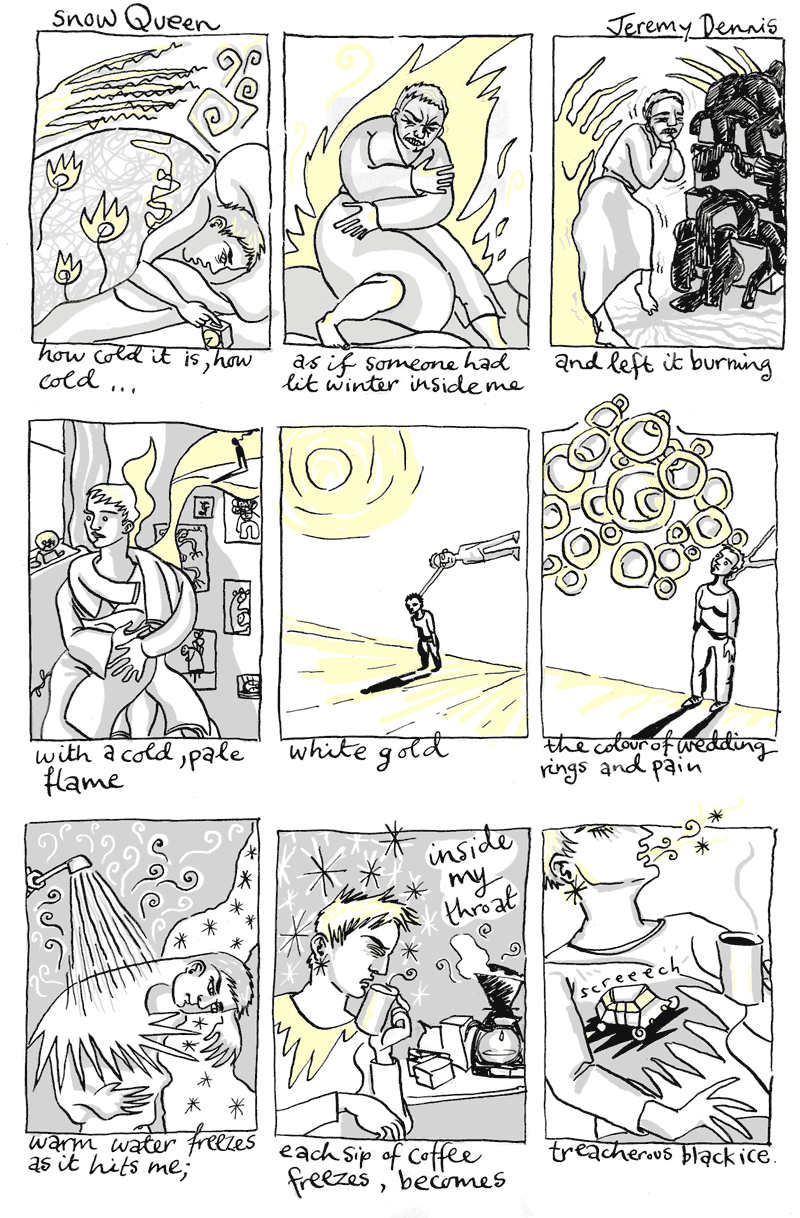 snow Queen
Jeremy Dennis
how cold it is, how
cold ...
as if someone had
lit winter inside me
and left it burning
with a cold, pale
flame
white gold
the colour of wedding
rings and pain
warm water freezes
as it hits me;
each sip of coffee
freezes, becomes
inside
my
throat
screeech
treacherous black ice.